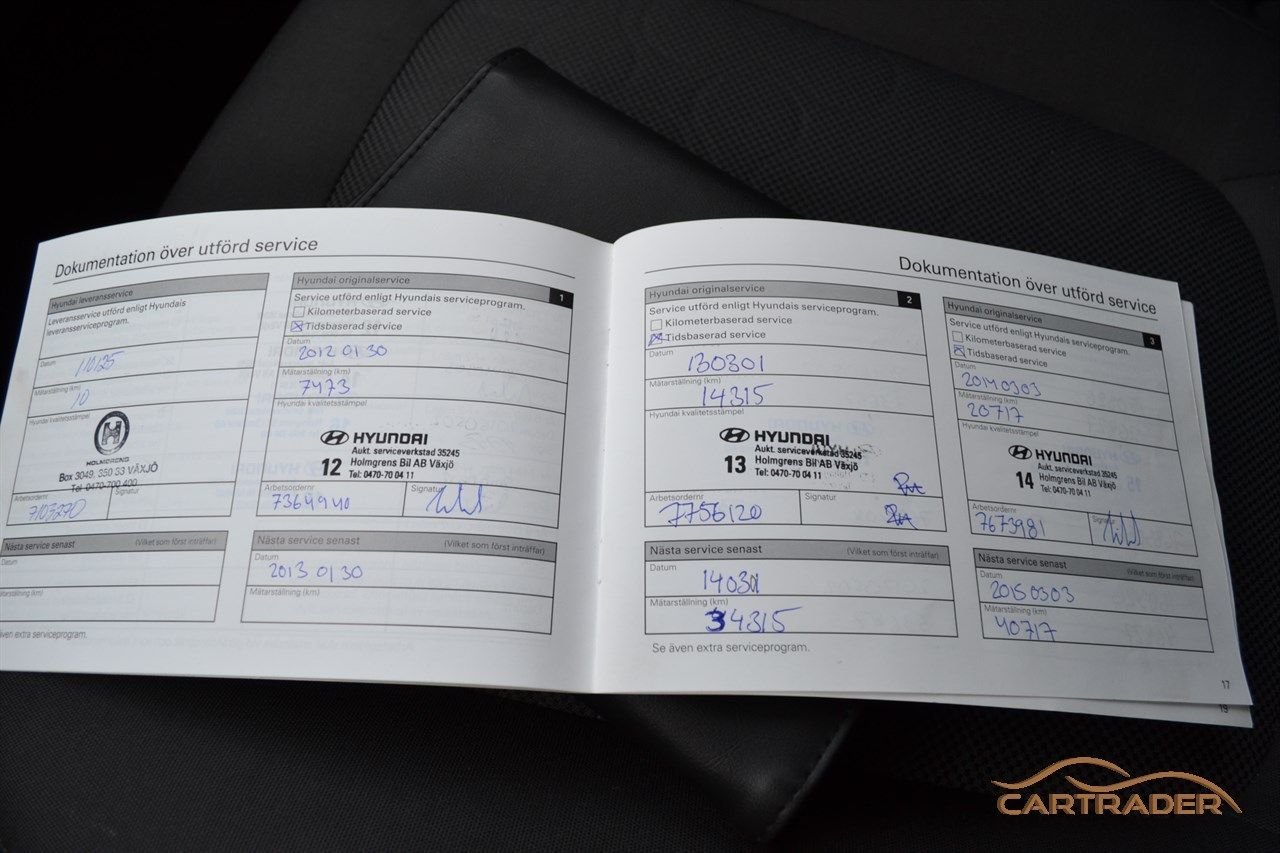 Dokumentation över utförd service
Hyundai leveransservice
Leveransservice utförd enligt Hyundais
leveransserviceprogram.
Datum
110125
Mätarställning (km)
10
Hyundai kvalitetsstämpel
HOLMGRENS
Box 3049, 350 33 VÄXJÖ
Tel 0470-700 400
Arbetsordernr
Signatur
7103270
Nästa service senast
Datum
Mätarställning (km)
även extra serviceprogram.
Hyundai originalservice
1
Service utförd enligt Hyundais serviceprogram.
Kilometerbaserad service
Tidsbaserad service
Datum
2012 01 30
Mätarställning (km)
7473
Hyundai kvalitetsstämpel
HYUNDAI
12
Aukt. serviceverkstad 35245
Holmgrens Bil AB Växjö
Tel: 0470-70 04 11
Arbetsordernr
Signatur
7364940
Nästa service senast
(Vilket som först inträffar)
Datum
2013 01 30
Mätarställning (km)
Dokumentation över utförd service
Hyundai originalservice
2
Service utförd enligt Hyundais serviceprogram.
Kilometerbaserad service
Tidsbaserad service
Datum
130301
Mätarställning (km)
14315
Hyundai kvalitetsstämpel
HYUNDAI
13
Aukt. serviceverkstad 35245
Holmgrens Bil AB Växjö
Tel: 0470-70 04 11
Arbetsordernr
Signatur
7756120
Nästa service senast
(Vilket som först inträffar)
Datum
140301
Mätarställning (km)
34315
Se även extra serviceprogram.
Hyundai originalservice
3
Service utförd enligt Hyundais serviceprogram.
Kilometerbaserad service
Tidsbaserad service
Datum
20140303
Mätarställning (km)
20717
Hyundai kvalitetsstämpel
HYUNDAI
14
Aukt. serviceverkstad 35245
Holmgrens Bil AB Växjö
Tel: 0470-70 04 11
Arbetsordernr
Signatur
7673981
Nästa service senast
(Vilket som först inträffar)
Datum
20150303
Mätarställning (km)
40717
17
19
CARTRADER